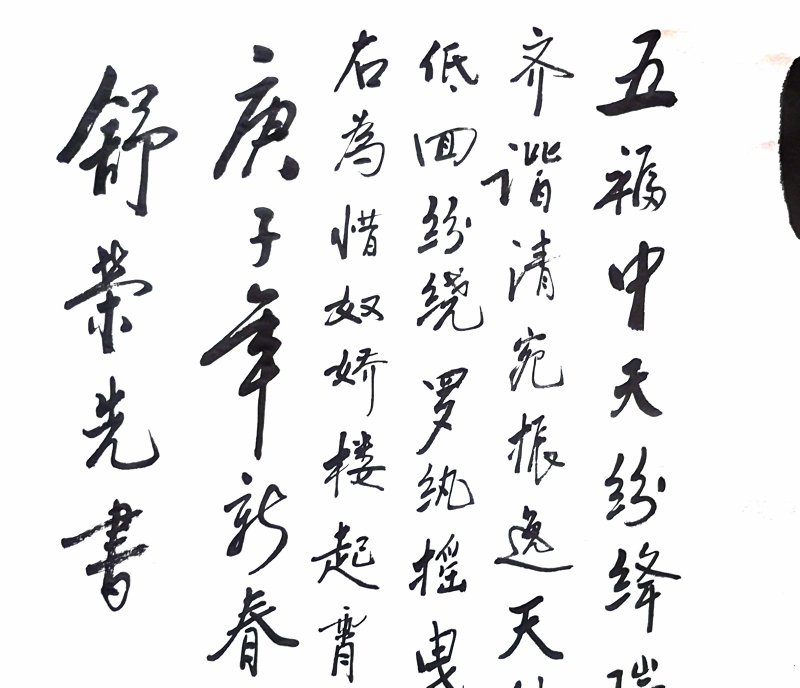 五福中天纷绛
齐谐清宛振逸天
低回纷绕罗纨摇曳
右为惜奴娇楼起霄
庚子年新春
舒荣先書